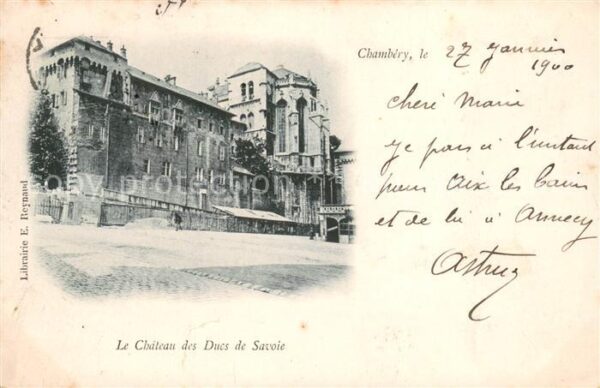 Chambéry, le 27 Janvier
1900
Chère Marie
je pars à l'instant
pour Aix les bains
et de là à Annecy
Librairie E. Reynaud
Le Château des Ducs de Savoie